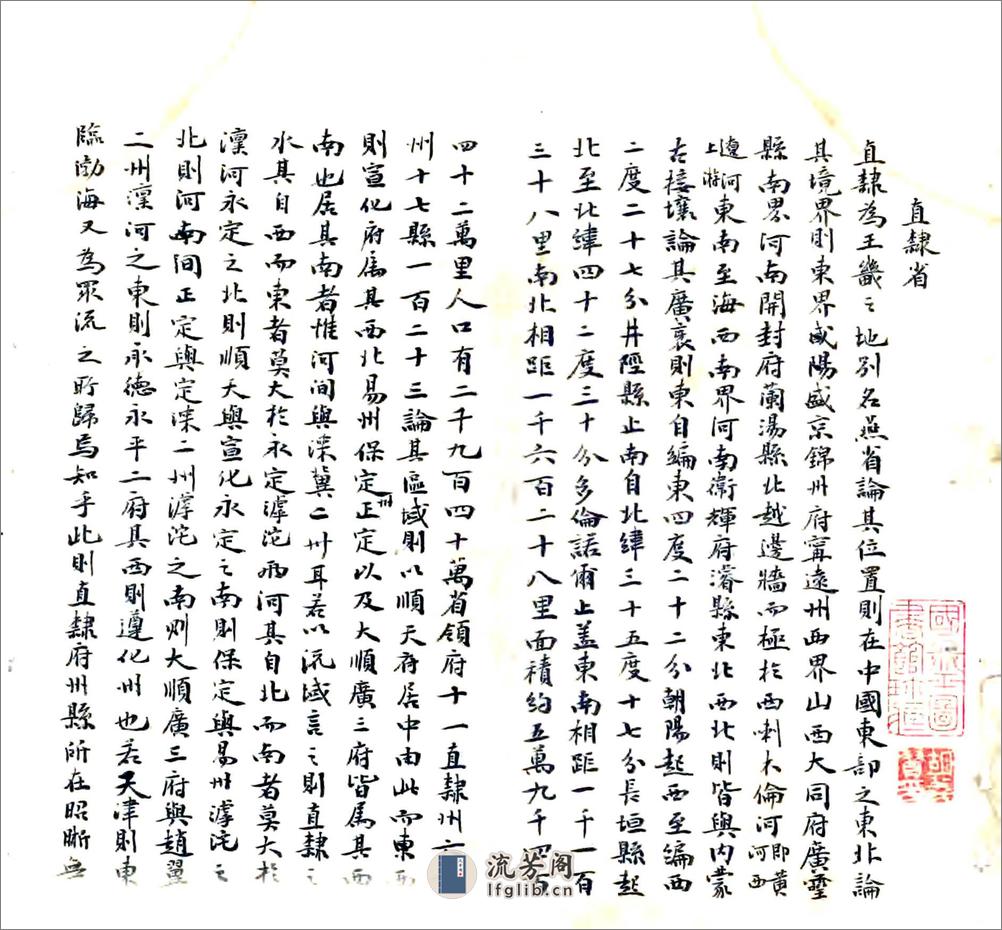 直隸省
直隸為王畿之地別名燕省論其位置則在中國東部之東北論
其境界則東界盛陽盛京錦州府寧遠州西界山西大同府廣靈
縣南界河南開封府蘭湯縣北越邊牆而極於西喇木倫河即黃河西
遼河上游東南至海西南界河南衛輝府濬縣東北西北則皆與內蒙
古接壤論其廣袤則東自編東四度二十二分朝陽起西至編西
二度二十七分井陘縣止南自北緯三十五度十七分長垣縣起
北至北緯四十二度三十分多倫諾爾止蓋東南相距一千一百
三十八里南北相距一千六百二十八里面積約五萬九千四百
四十二萬里人口有二千九百四十萬省領府十一直隸州六
州十七縣一百二十三論其區域則以順天府居中由此而東西
則宣化府為其西北易州保定正定以及大順廣三府皆為其西
南也居其南者惟河間與深冀二州耳若以流域言之則直隸之
水其自西而東者莫大於永定滹沱兩河其自北而南者莫大於
灤河永定之北則順天與宣化永定之南則保定與易州滹沱之
北則河南間正定與定深二州滹沱之南則大順廣三府與趙冀
二州灤河之東則承德永平二府其西則遵化州也若天津則東
臨渤海又為眾流之所歸焉知乎此則直隸府州縣所在昭晰無
流芳阁
lfglib.cn